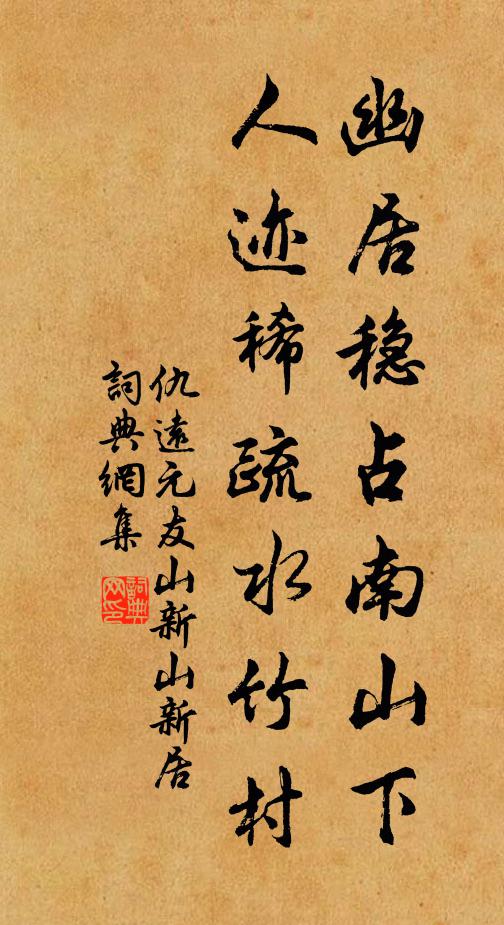 幽居穩占南山下
人迹稀疏水竹村
仇遠元友山新山新居
詞典網集
詞典網印